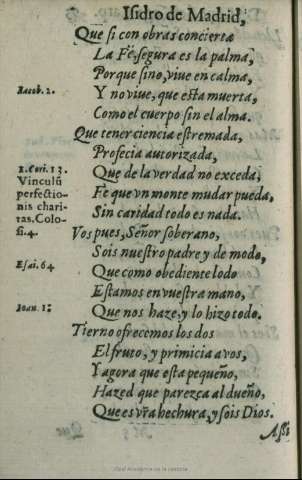 Isidro de Madrid,
Que si con obras concierta
La Fè, segura es la palma,
Porque sino, viue en calma,
Iacob. 2.
Y no viue, que esta muerta,
Como el cuerpo sin el alma.
Que tener ciencia estremada,
Profecia autorizada,
1. Cori. 13.
Vinculũ
perfectio-
nis chari-
tas. Colo-
si. 4.
Que de la verdad no exceda,
Fe que vn monte mudar pueda,
Sin caridad todo es nada.
Vos pues, Señor soberano,
Sois nuestro padre y de modo,
Esai. 64
Que como obediente lodo
Estamos en vuestra mano,
Ioan. 1.
Y que nos haze, y lo hizo todo.
Tierno ofrecemos los dos
El fruto, y primicia a vos,
Y agora que esta pequeño,
Hazed que parezca al dueño,
Que es vr̃a hechura, y sois Dios.
Assi